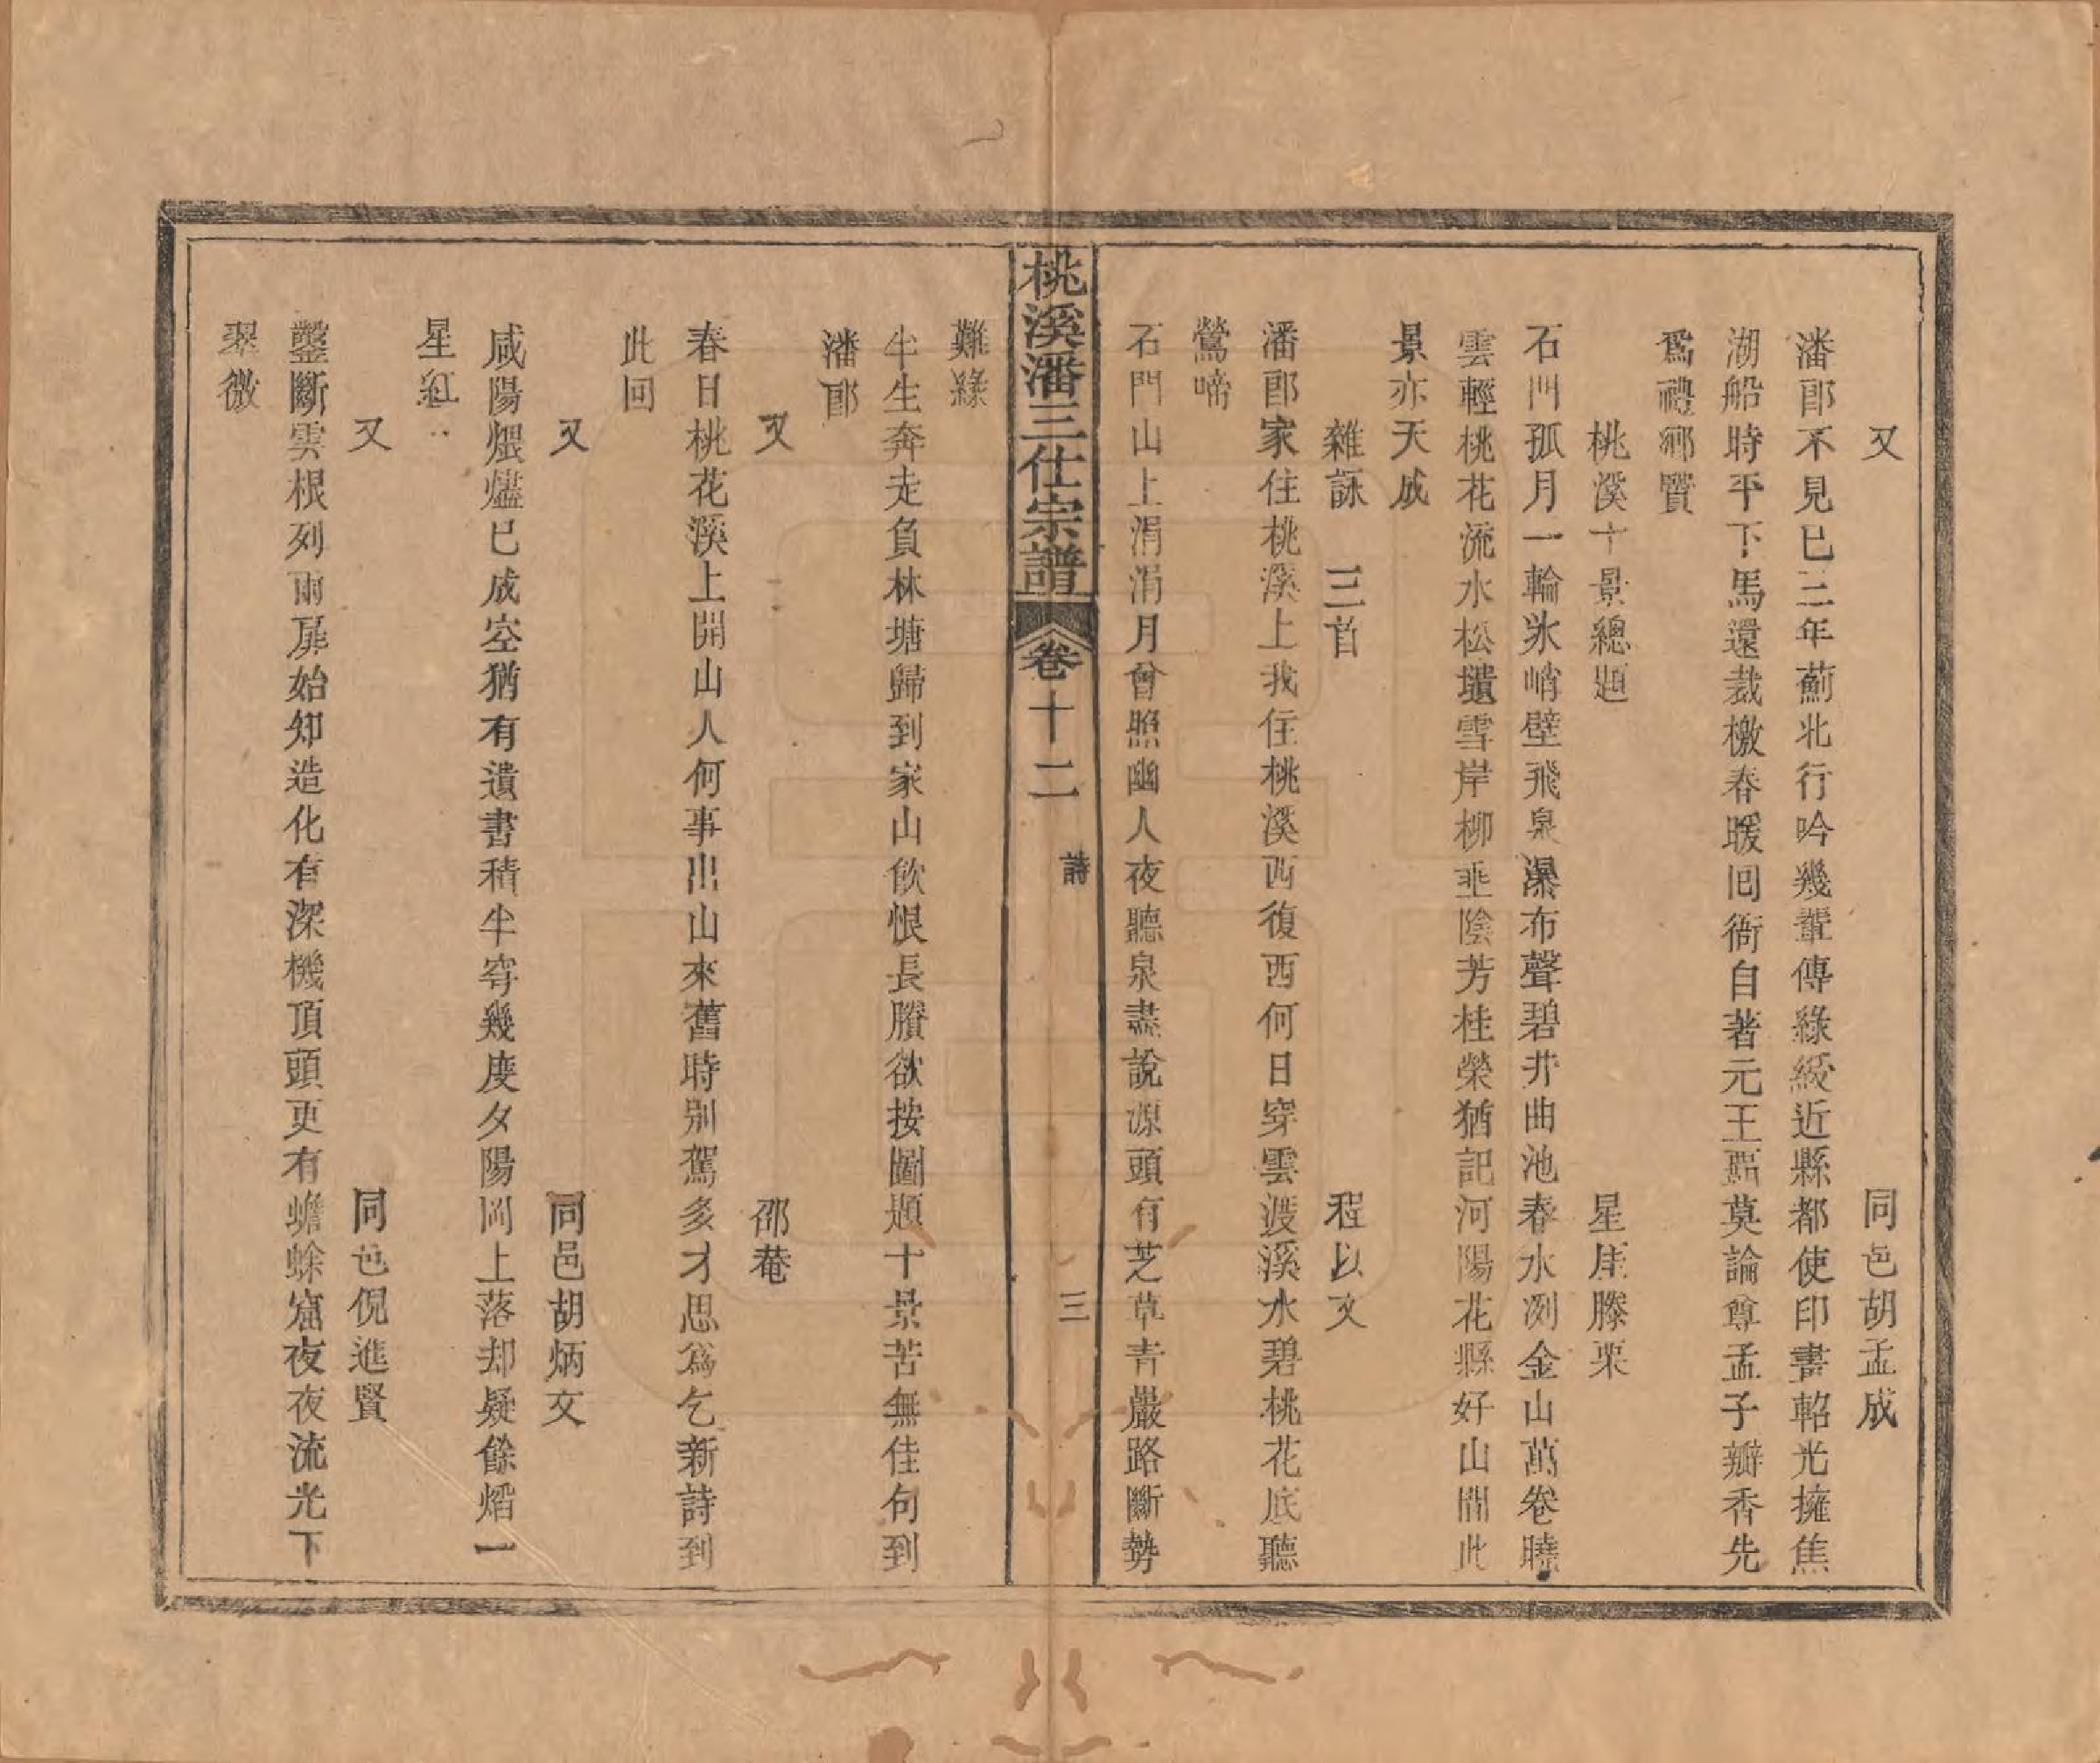 又　同邑胡孟成
潘郎不見已三年薊北行吟幾輩傳綠綬近縣都使印書軺光擁焦
湖船時平下馬還裁檄春暖回衙自著元王霸莫論尊孟子瓣香先
爲禮鄉賢
桃溪十景總題　星厓滕栗
石門孤月一輪氷峭壁飛泉瀑布聲碧井曲池春水冽金山萬卷曉
雲輕桃花流水松壝雪岸柳垂陰芳桂榮猶記河陽花縣好山間此
景亦天成
雜詠　三首　程以文
潘郎家住桃溪上我住桃溪西復西何日穿雲渡溪水碧桃花底聽
鶯啼
石門山上涓涓月曾照幽人夜聽泉盡說源頭有芝草青巖路斷勢
難緣
半生奔走負林塘歸到家山飲恨長賸欲按圖題十景苦無佳句到
潘郎
又　邵菴
春日桃花溪上開山人何事出山來舊時別駕多才思爲乞新詩到
此回
又　同邑胡炳文
咸陽煨燼已成空猶有遺書積半穹幾度夕陽岡上落却疑餘熖一
星紅
又　同邑倪進賢
鑿斷雲根列兩扉始知造化有深機頂頭更有蟾蜍窟夜夜流光下
翠微
桃溪潘三仕宗譜　卷十二　詩　三